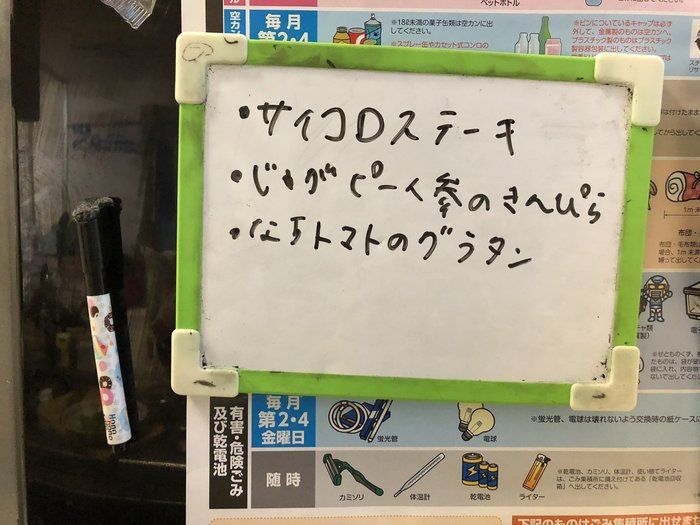 ペットボトル
空カン
毎月
第2・4
※18ℓ未満の菓子缶類は空カンに出
してください。
※スプレー缶やカセット式コンロの
※ビンについているキャップは必ず
外して、金属製のものは空カンへ、
プラスチック製のものはプラスチック
製容器包装に出してください。
・サイコロステーキ
・じゃがピー人参のきんぴら
・なすトマトのグラタン
1m未
布団・
布団・毛布類
場合、1m未満
縛って出してく
※せとものくず、
たものは、袋が破
袋に入れ、内容物
ないで出してくださ
有害・危険ごみ
及び乾電池
毎月
第2・4
金曜日
蛍光管
電球
※蛍光管、電球は壊れないよう交換時の紙ケースに
随時
カミソリ
体温計
乾電池
ライター
※乾電池、カミソリ、体温計、使い捨てライター
は、ごみ集積所に備え付けてある「乾電池回収
箱」へ出してください。
下記のものはごみ集積所に出せま